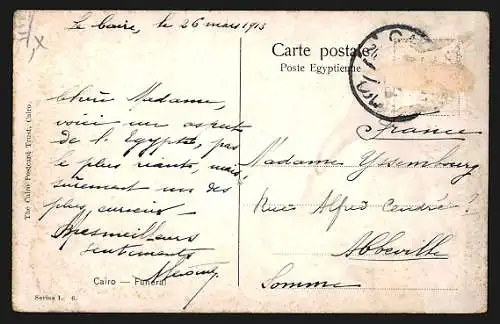 Le Caire, le 26 mars 1913
Carte postale
Poste Egyptienne
Chère Madame,
voici un aspect
de l'Egypte, pas
le plus riant, mais
sûrement un des
plus curieux.
Mes meilleurs
sentiments
Cairo — Funeral
Series L. 6.
The Cairo Postcard Trust, Cairo.
France
Madame Yssembourg
Rue Alfred Cendré ?
Abbeville
Somme